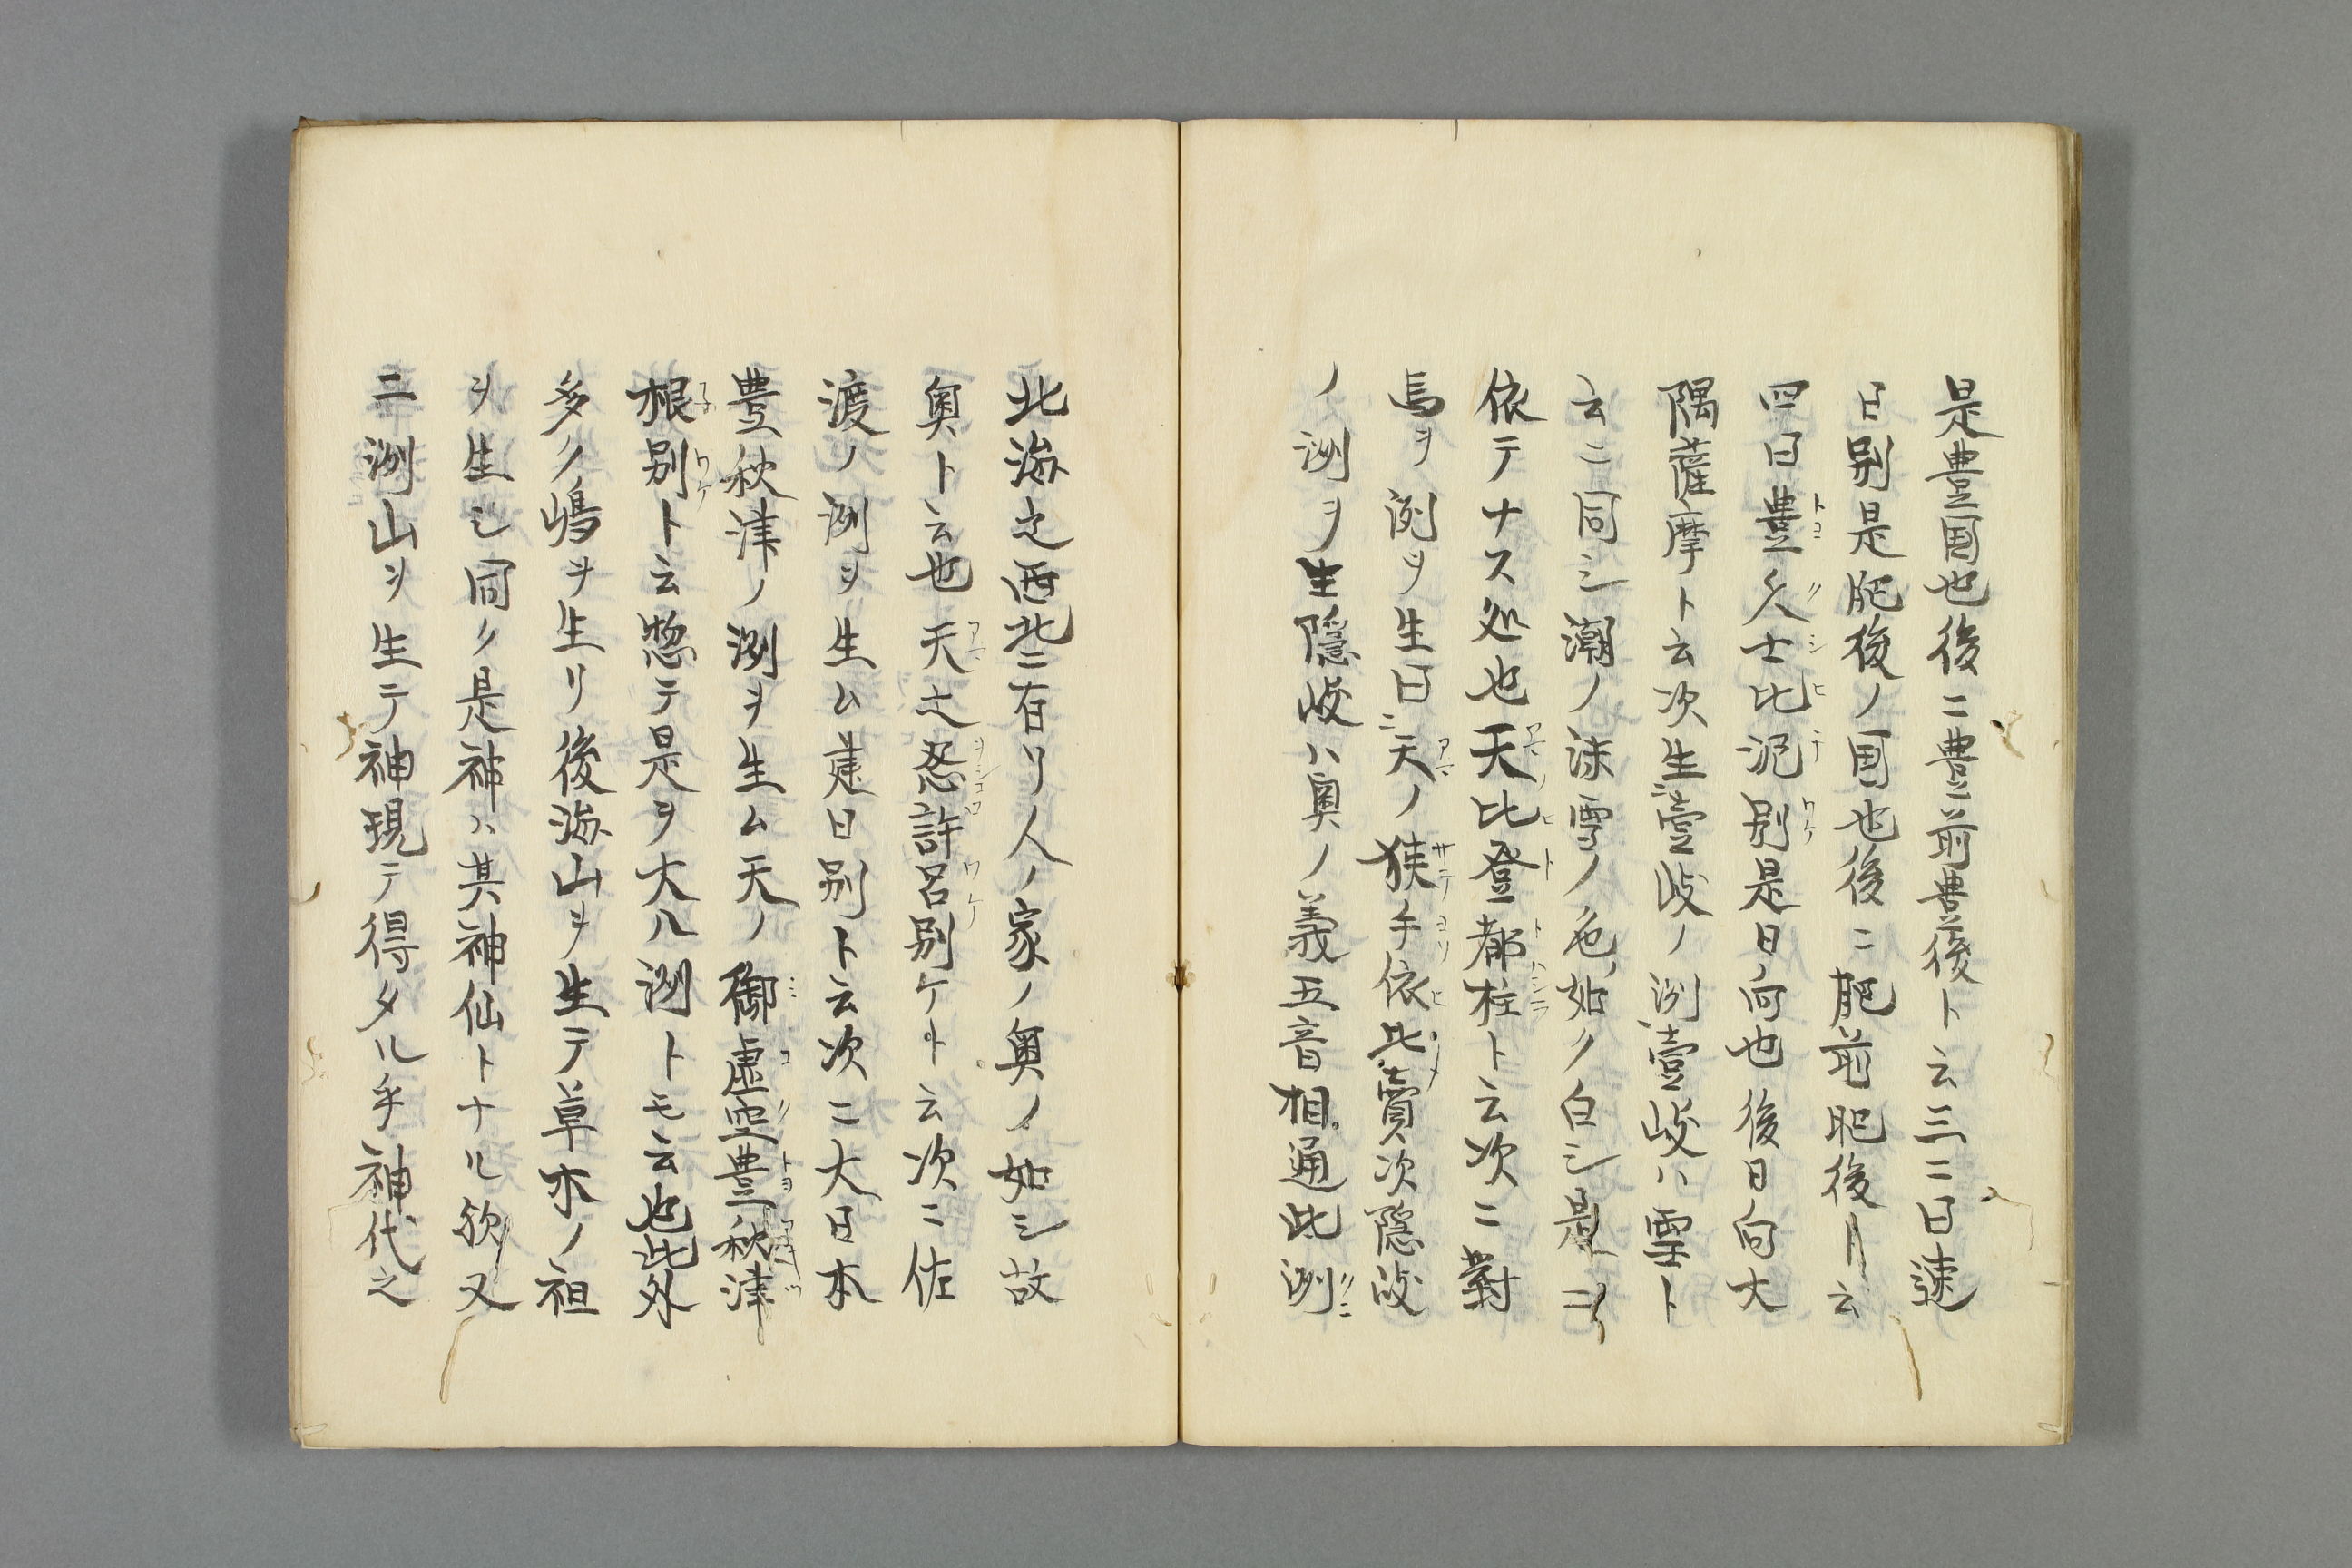 是豊国也後ニ豊前豊後ト云三ニ曰速
日別是肥後ノ国也後ニ肥前肥後ト云
四曰豊久士比泥別是日向也後日向大
隅薩摩ト云次生壹岐ノ洲壹岐ハ雪ト
云ニ同シ潮ノ沫雪ノ色如ク白シ是ニ
依テナス処也天比登都柱ト云次ニ對
馬ヲ洲ヲ生曰天ノ狭手依比賣次隠岐
ノ洲ヲ生隠岐ハ奥ノ義五音相通此洲
北海之西北ニ有リ人ノ家ノ奥ノ如シ故
奥ト云也天之忍許呂別ケト云次ニ佐
渡ノ洲ヲ生ム建日別ト云次ニ大日本
豊秋津ノ洲ヲ生ム天ノ御虚空豊秋津
根別ト云惣テ是ヲ大八洲トモ云也此外
多ク嶋ヲ生リ後海山ヲ生テ草木ノ祖
ヲ生シ同ク是神ハ其神仙トナル欤又
二洲山ヲ生テ神現テ得タル乎神代之